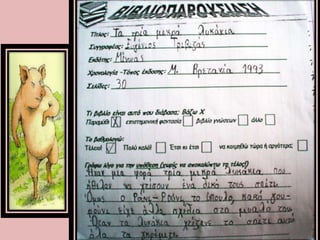 ΒΙΒΛΙΟΠΑΡΟΥΣΙΑΣΗ
Τίτλος: Τα τρία μικρά λυκάκια
Συγγραφέας: Ευγένιος Τριβιζάς
Εκδότης: Μίνωας
Χρονολογία -Τόπος έκδοσης: Μ. Βρετανία 1993
Σελίδες: 30
Το βιβλίο είναι αυτό που διάβασα: Βάζω Χ
Παραμύθι Χ επιστημονική φαντασία βιβλίο γνώσεων άλλο
Το βαθμολογώ:
Τέλειο! Πολύ καλό! Έτσι κι έτσι να κοιμηθώ τώρα ή αργότερα;
Γράφω λίγα για την υπόθεση (χωρίς να αποκαλύψω το τέλος!)
Ήταν μια φορά τρία μικρά λυκάκια που
ήθελαν να χτίσουν ένα δικό τους σπίτι
Όμως ο Ρούνι-Ρούνι, το μπουλο, κακό γου-
ρούνι είχε άλλα σχέδια στο μυαλό του.
Όταν τα λυκάκια έχτιζαν το σπίτι αυτό
όλα τα γκρέμιζε